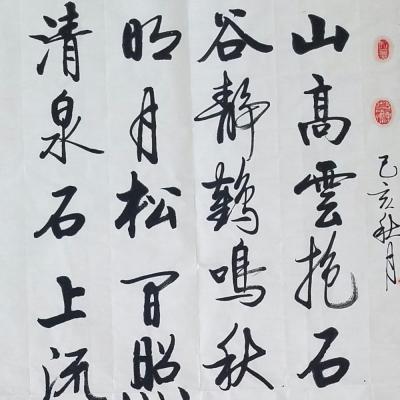 己亥秋月
山高雲抱石
谷静鹤鳴秋
明月松间照
清泉石上流